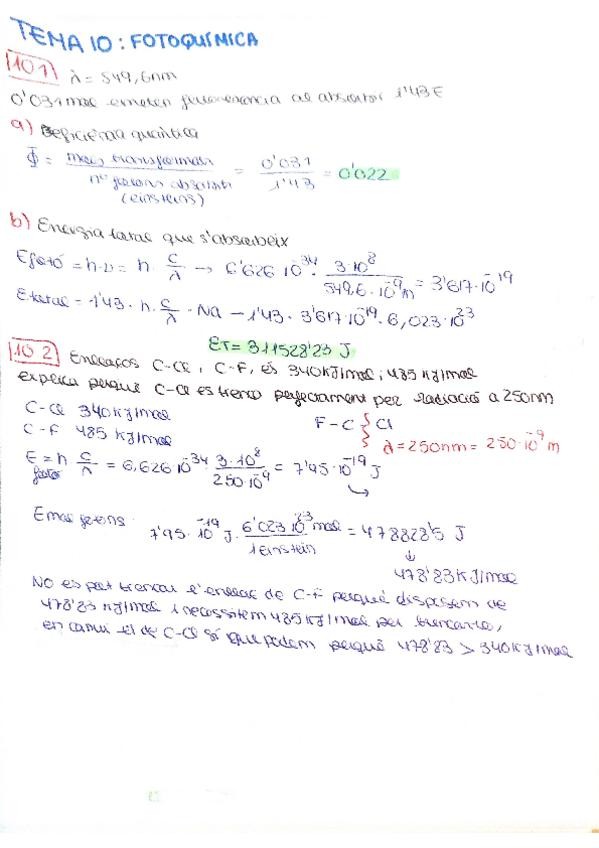 TEMA 10: FOTOQUÍMICA
10.1 λ = 549,6nm
0'031 mol emeten fluorescencia al absorbir 1'43 E
a) eficiencia quàntica
Φ = mols transformats / nº fotons absorbits (einsteins) = 0'031 / 1'43 = 0'022
b) Energia total que s'absorbeix
E fotó = h·ν = h · c/λ → 6'626·10⁻³⁴ · 3·10⁸ / 549,6·10⁻⁹ m = 3'617·10⁻¹⁹
E total = 1'43 · h · c/λ · Na − 1'43 · 3'617·10⁻¹⁹ · 6,023·10²³
ET = 311528'23 J
10.2 Enllaços C-Cl i C-F, és 340 KJ/mol i 485 KJ/mol
explica perquè C-Cl es trenca perfectament per radiació a 250nm
C-Cl 340 KJ/mol
F-C { Cl
C-F 485 KJ/mol
λ = 250nm = 250·10⁻⁹ m
E fotó = h c/λ = 6,626·10⁻³⁴ 3·10⁸ / 250·10⁻⁹ = 7'95·10⁻¹⁹ J
E mol fotons:
7'95·10⁻¹⁹ J · 6'023·10²³ mol / 1 einstein = 478828'5 J
↓
478'83 KJ/mol
NO es pot trencar l'enllaç de C-F perquè disposem de
478'83 KJ/mol i necessitem 485 KJ/mol per trencarlo,
en canvi el de C-Cl sí que podem perquè 478'83 > 340 KJ/mol